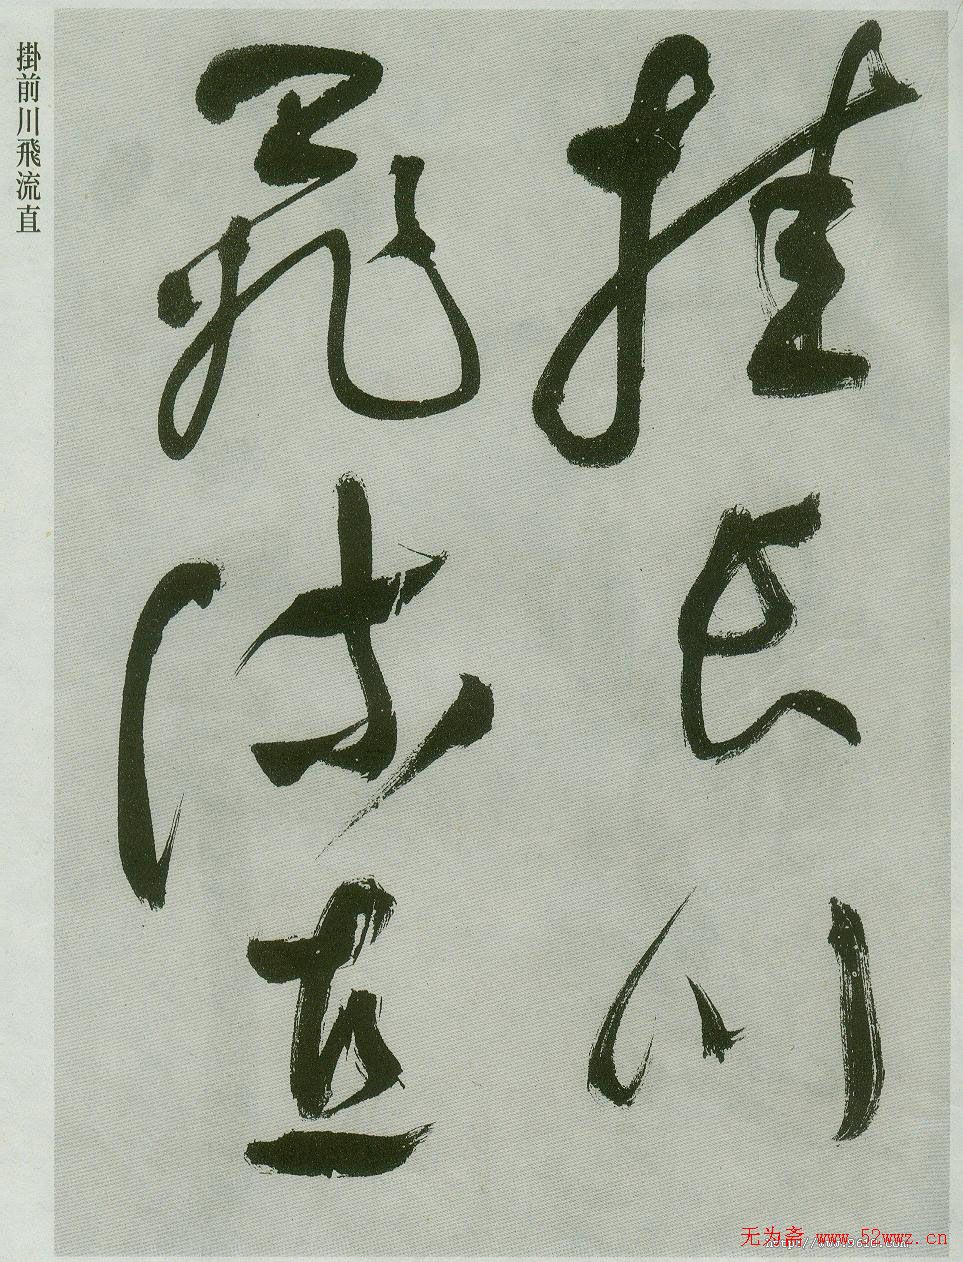 挂长川
飛流直
掛前川飛流直
无为斋 www.52wwz.cn